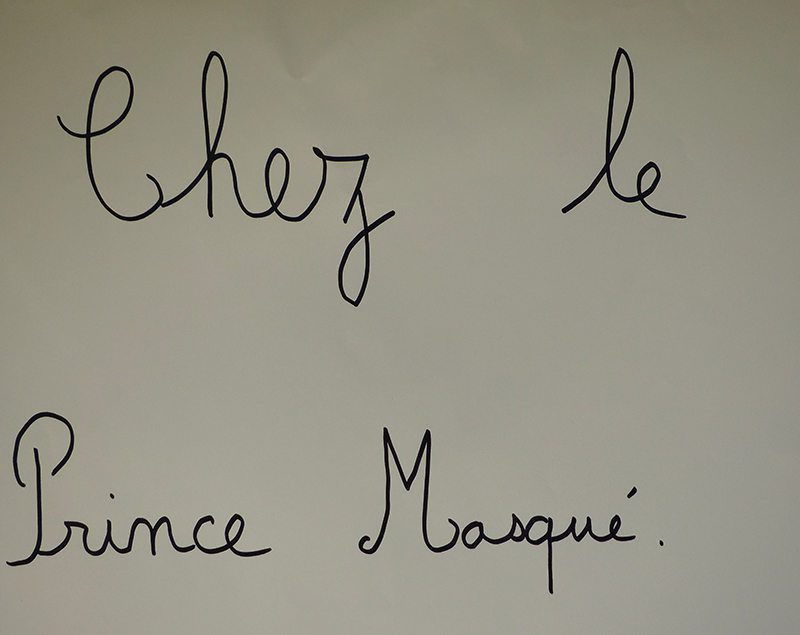 Chez le
Prince Masqué.